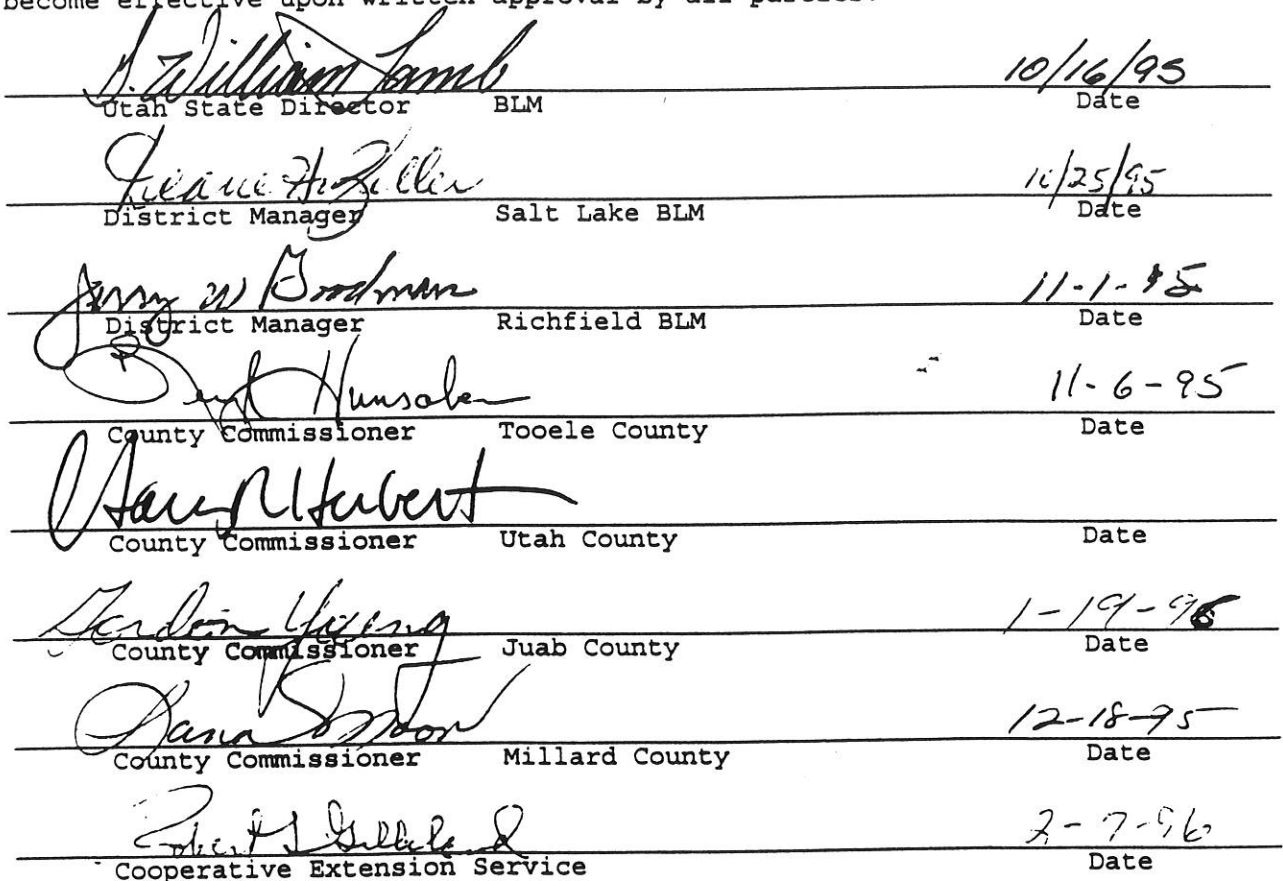 become effective upon written approval by all parties.
G. William Lamb 10/16/95
Utah State Director BLM Date
Deane H. Zeller 10/25/95
District Manager Salt Lake BLM Date
Jerry W Goodman 11-1-95
District Manager Richfield BLM Date
Hunsaker 11-6-95
County Commissioner Tooele County Date
Gary R Herbert
County Commissioner Utah County Date
Gordon Young 1-19-96
County Commissioner Juab County Date
Dana 12-18-95
County Commissioner Millard County Date
Robert L Gilliland 2-7-96
Cooperative Extension Service Date